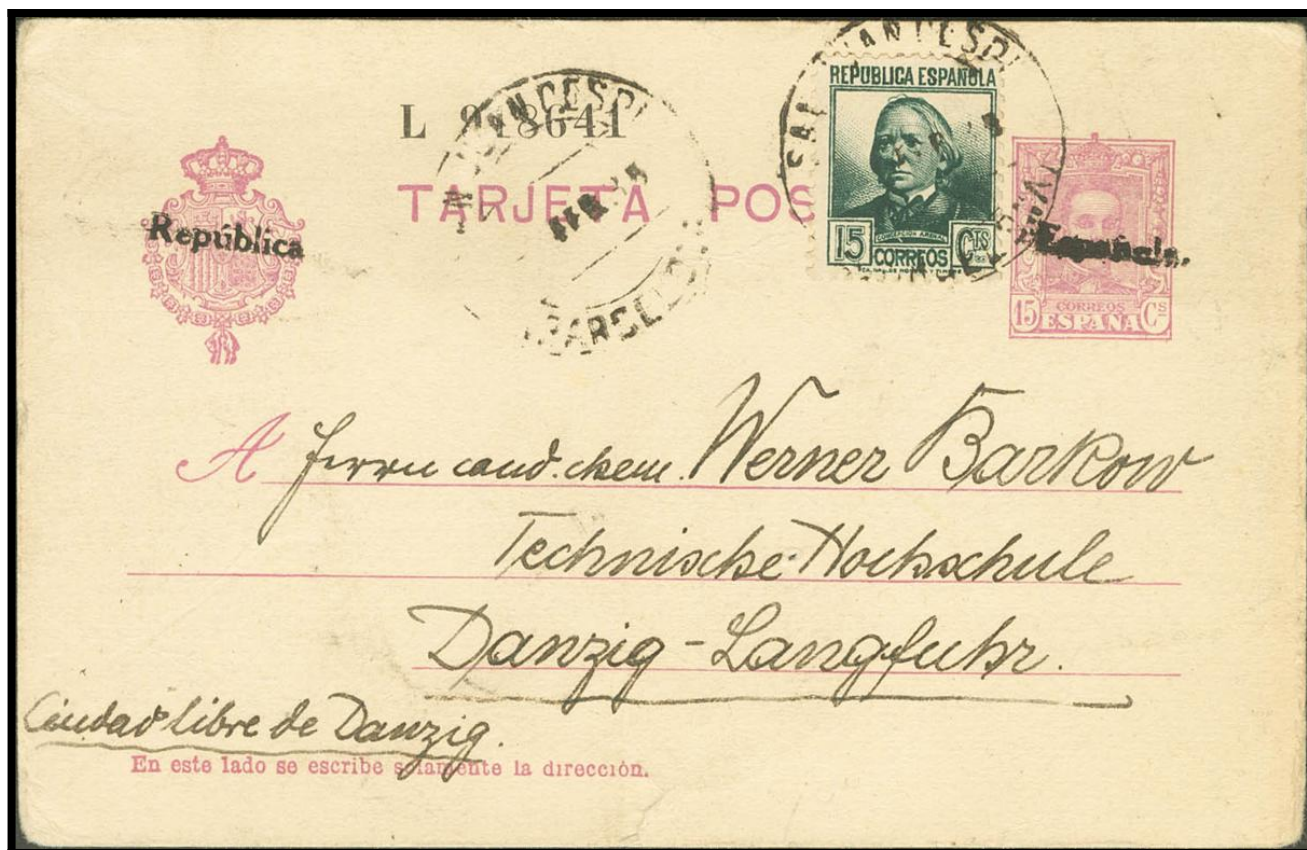 L 918641
TARJETA POS
República
Española.
REPUBLICA ESPAÑOLA
CONCEPCION ARENAL
15 CORREOS CTS
15 CORREOS Cs
ESPAÑA
BARCELONA
A Herrn cand. chem. Werner Barkow
Technische Hochschule
Danzig-Langfuhr.
Ciudad libre de Danzig.
En este lado se escribe solamente la dirección.